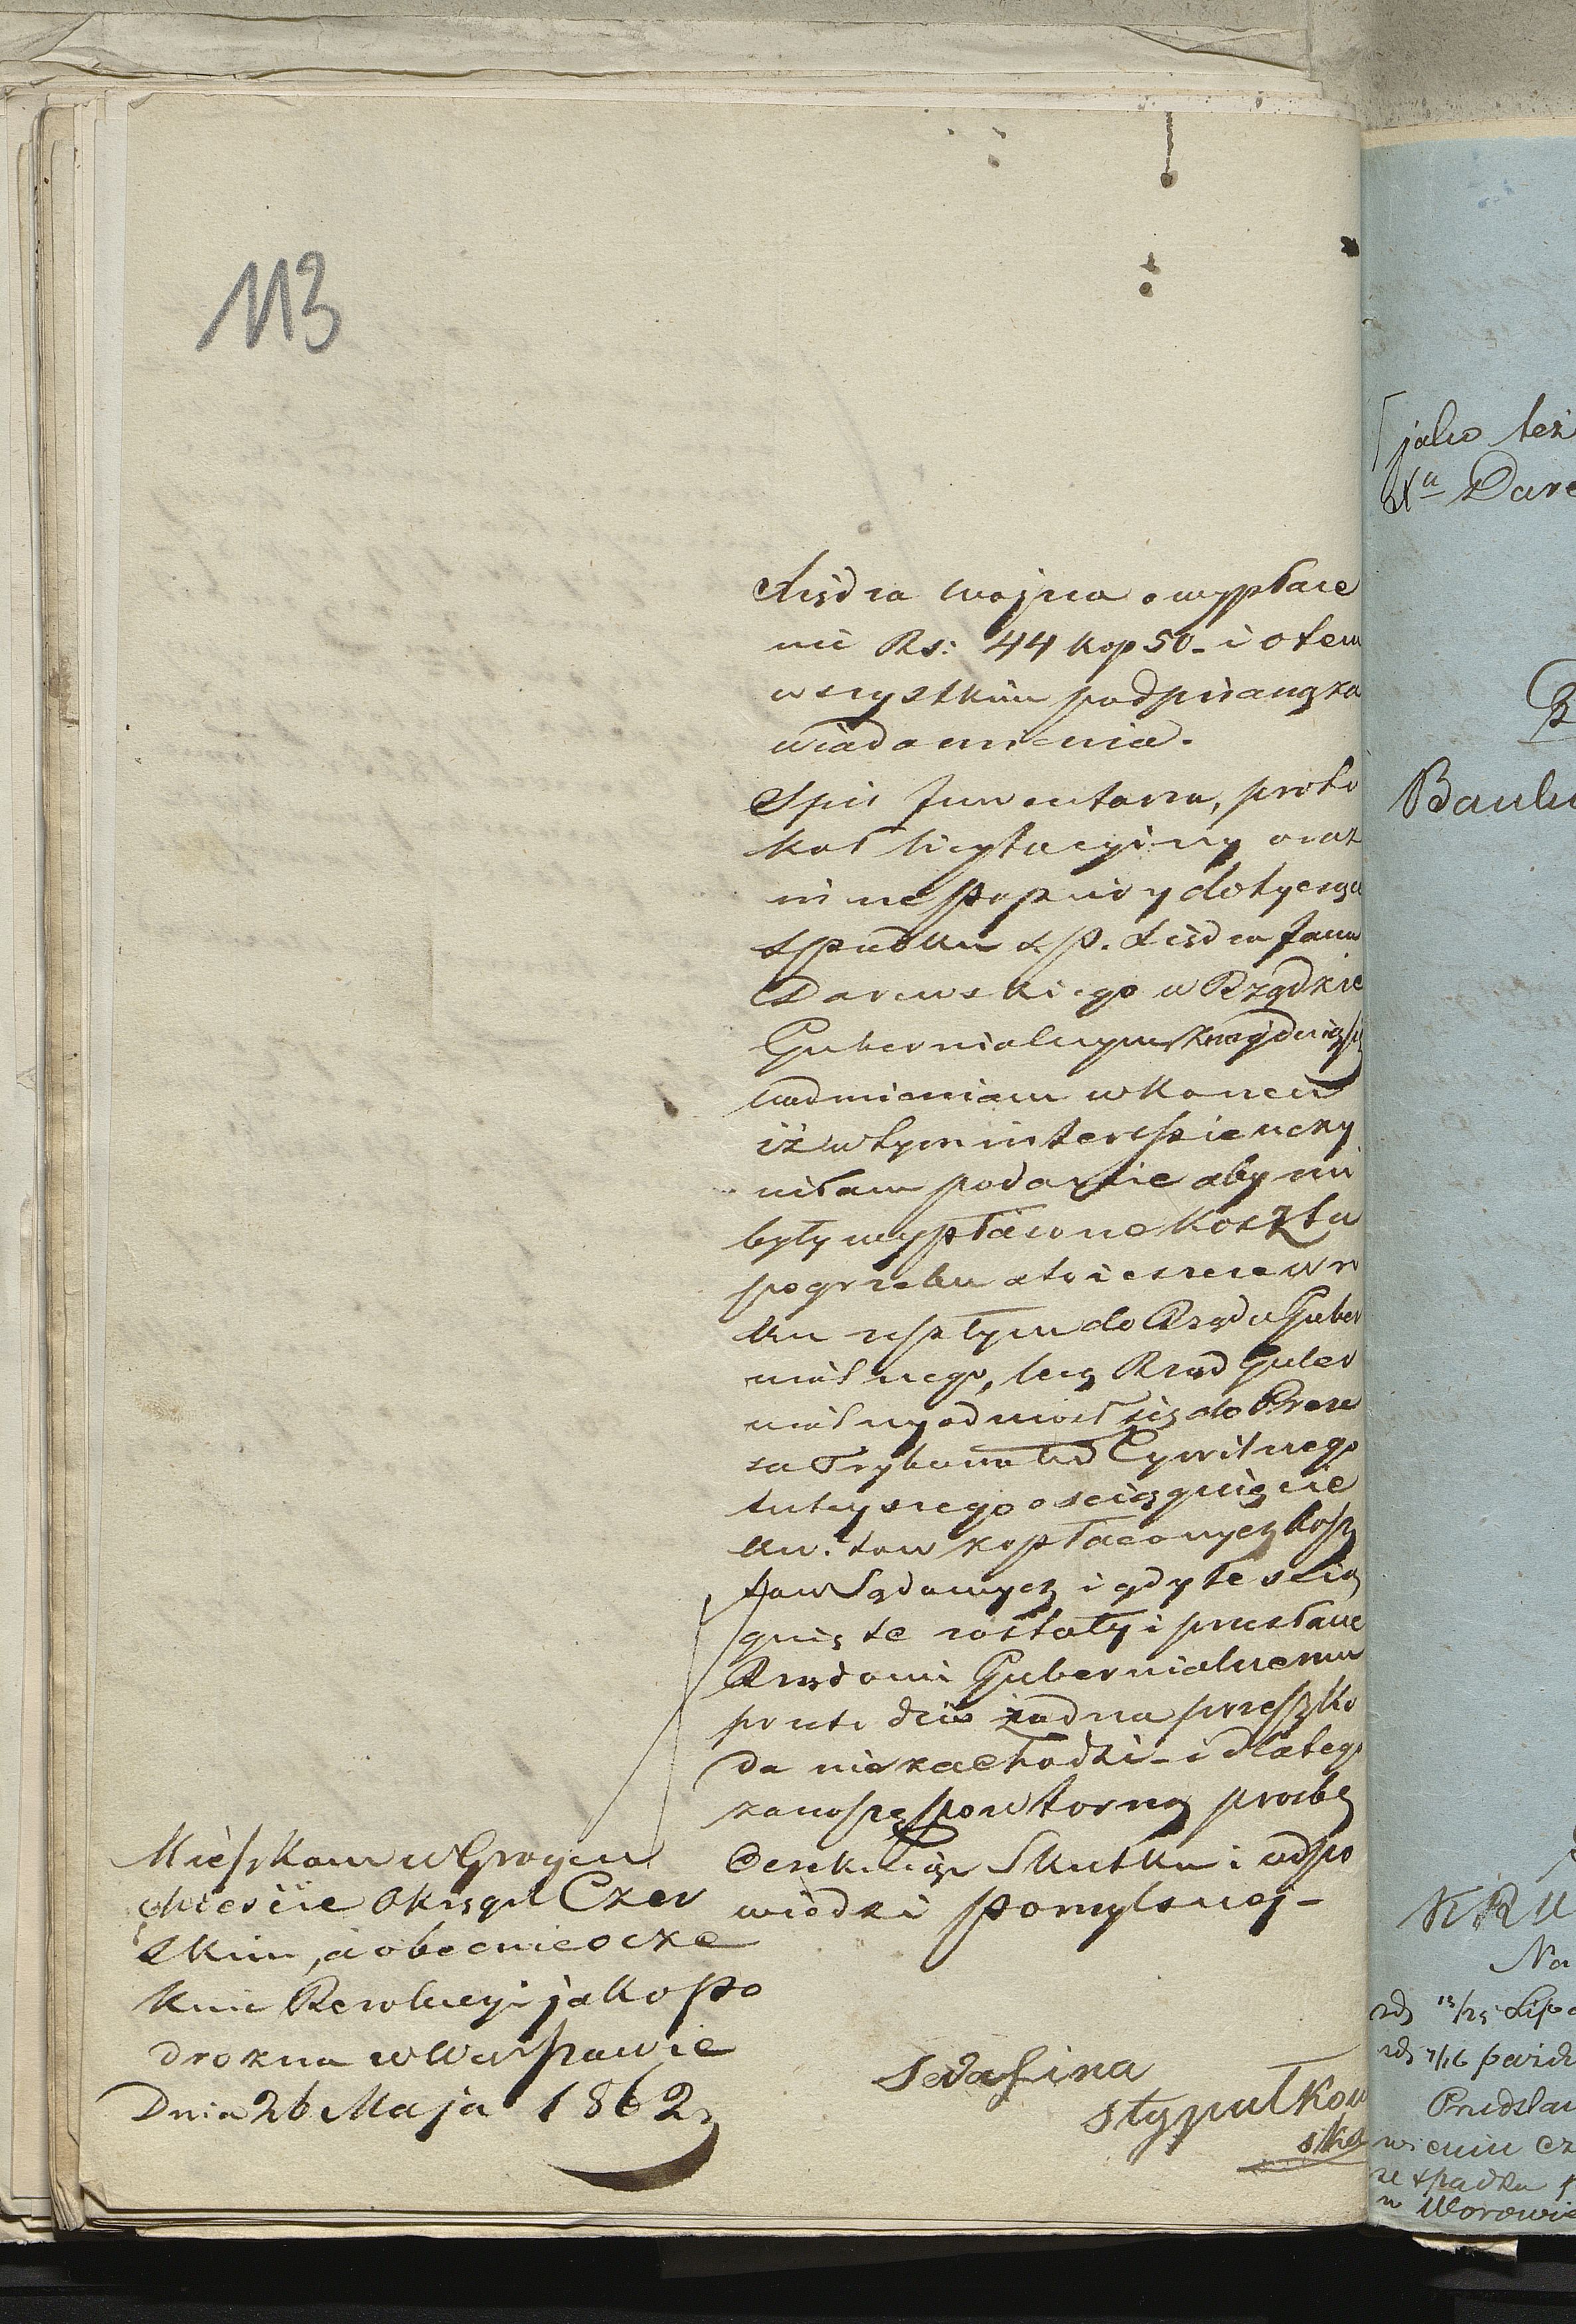 113
Xiędza wujna o wypłace
nie Rs: 44 kop 50 - i o tem
wszystkim podpisaną za
wiadomienia.
Spis Inwentarza, proto
kół licytacyiny oraz
inne papiery dotyczące
spadku ś. p. Xiędza Jana
Darewskiego w Rządzie
Gubernialnym znajdują się
nadmieniam w Koncu
iż w tym interessie uczy
niłam podanie aby mi
były wypłacone Koszta
pogrzebu a to ieszcze w ro
ku zeszłym do Rządu Guber
nialnego, lecz Rząd Guber
nialny odniosł się do Preze
sa Trybunału Cywilnego
tutejszego o sciągnięcie
kwitow zapłaconych kosz
tow Sądowych i gdy te scią
gnięte zostały i przesłane
Rządowi Gubernialnemu
przeto dziś żadna przeszko
da nie zachodzi - i dlatego
zanoszę powtorną prosbę
Oczekując Skutku i odpo
wiedzi pomyslnej -
Mieszkam w Groycu
Mieście Okręgu Czer
skim, a obecnie ocze
kuie Rezolucyi jako po
drożna w Warszawie
Dnia 26 Maja 1862
Serafina
Stypułkow
ska
jako też
Xa Dare
B
Banku
KRU
Na
13/25 Lip
Przedstaw
wieniu cz
ze spadku
w Worowie